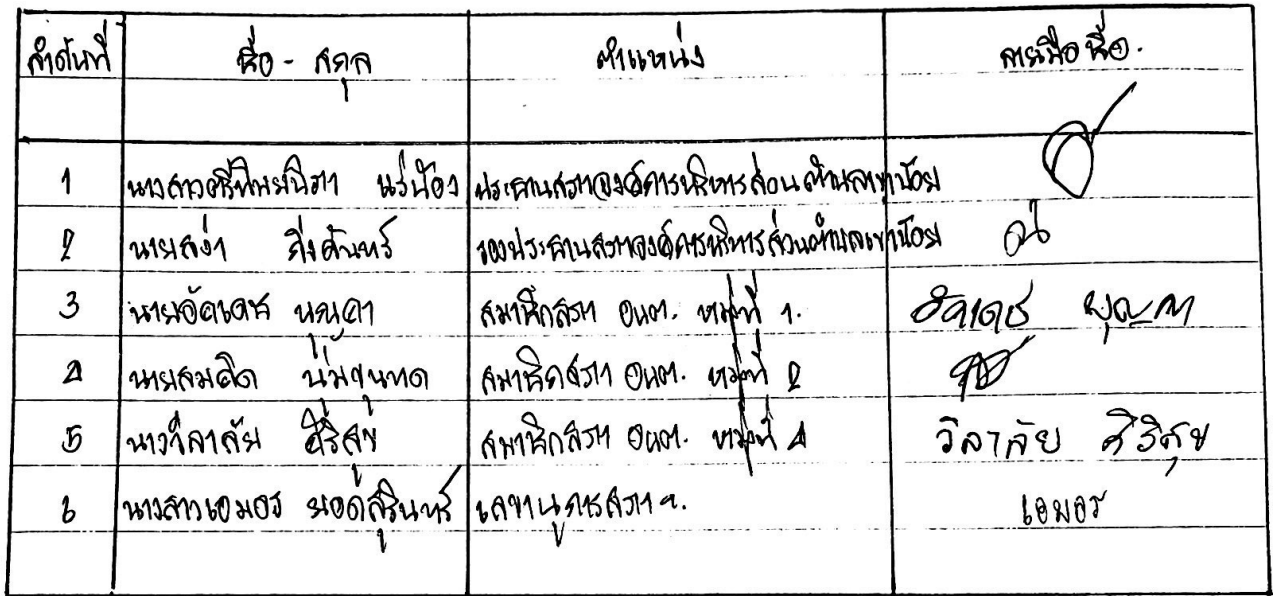 ลำดับที่ ชื่อ - สกุล ตำแหน่ง ลายมือชื่อ.
1 นางสาวศรีทิพย์นิภา แร่น้อง ประธานสภาองค์การบริหารส่วนตำบลเขาน้อย
2 นายสง่า กิ่งจันทร์ รองประธานสภาองค์การบริหารส่วนตำบลเขาน้อย
3 นายอัคเดช บุญคา สมาชิกสภา อบต. หมู่ที่ 1. อัคเดช บุญคา
4 นายสมคิด นุ่มขุนทด สมาชิกสภา อบต. หมู่ที่ 2
5 นางวิลาลัย ศิริสุข สมาชิกสภา อบต. หมู่ที่ 4 วิลาลัย ศิริสุข
6 นางสาวเอมอร ยอดสุรินทร์ เลขานุการสภาฯ. เอมอร